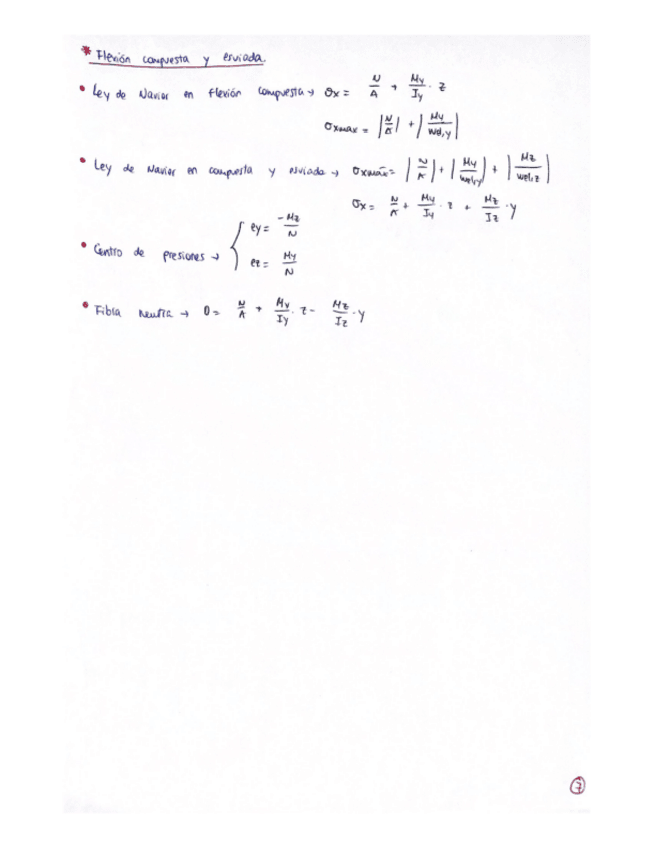 * Flexión compuesta y esviada.
• Ley de Navier en flexión compuesta → σx = N/A + My/Iy · z
σxmax = |N/A| + |My/Wel,y|
• Ley de Navier en compuesta y esviada → σxmáx = |N/A| + |My/Wel,y| + |Mz/Wel,z|
σx = N/A + My/Iy · z + Mz/Iz · y
• Centro de presiones → { ey = -Mz/N
ez = My/N
• Fibra Neutra → 0 = N/A + My/Iy · z - Mz/Iz · y
7